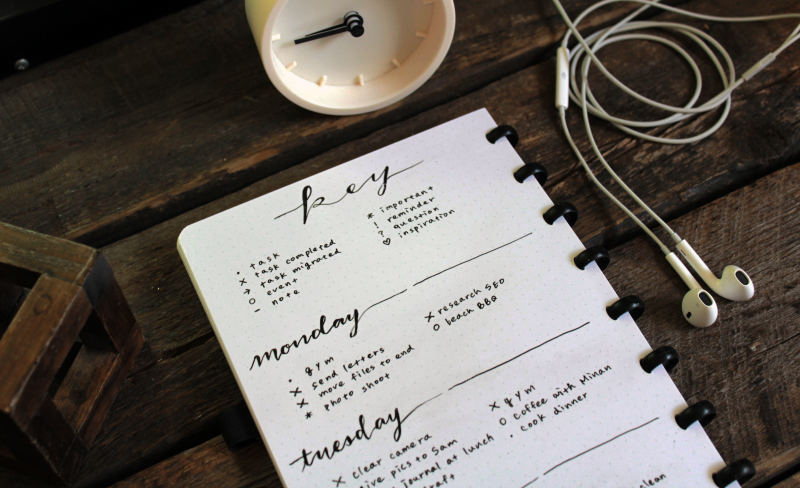 key
• task
x task completed
→ task migrated
o event
- note
* important
! reminder
? question
♡ inspiration
monday
• gym
x send letters
x move files to end
* photo shoot
x research SEO
o beach BBQ
tuesday
x clear camera
pics to Sam
journal at lunch
x gym
o coffee with Minan
• cook dinner